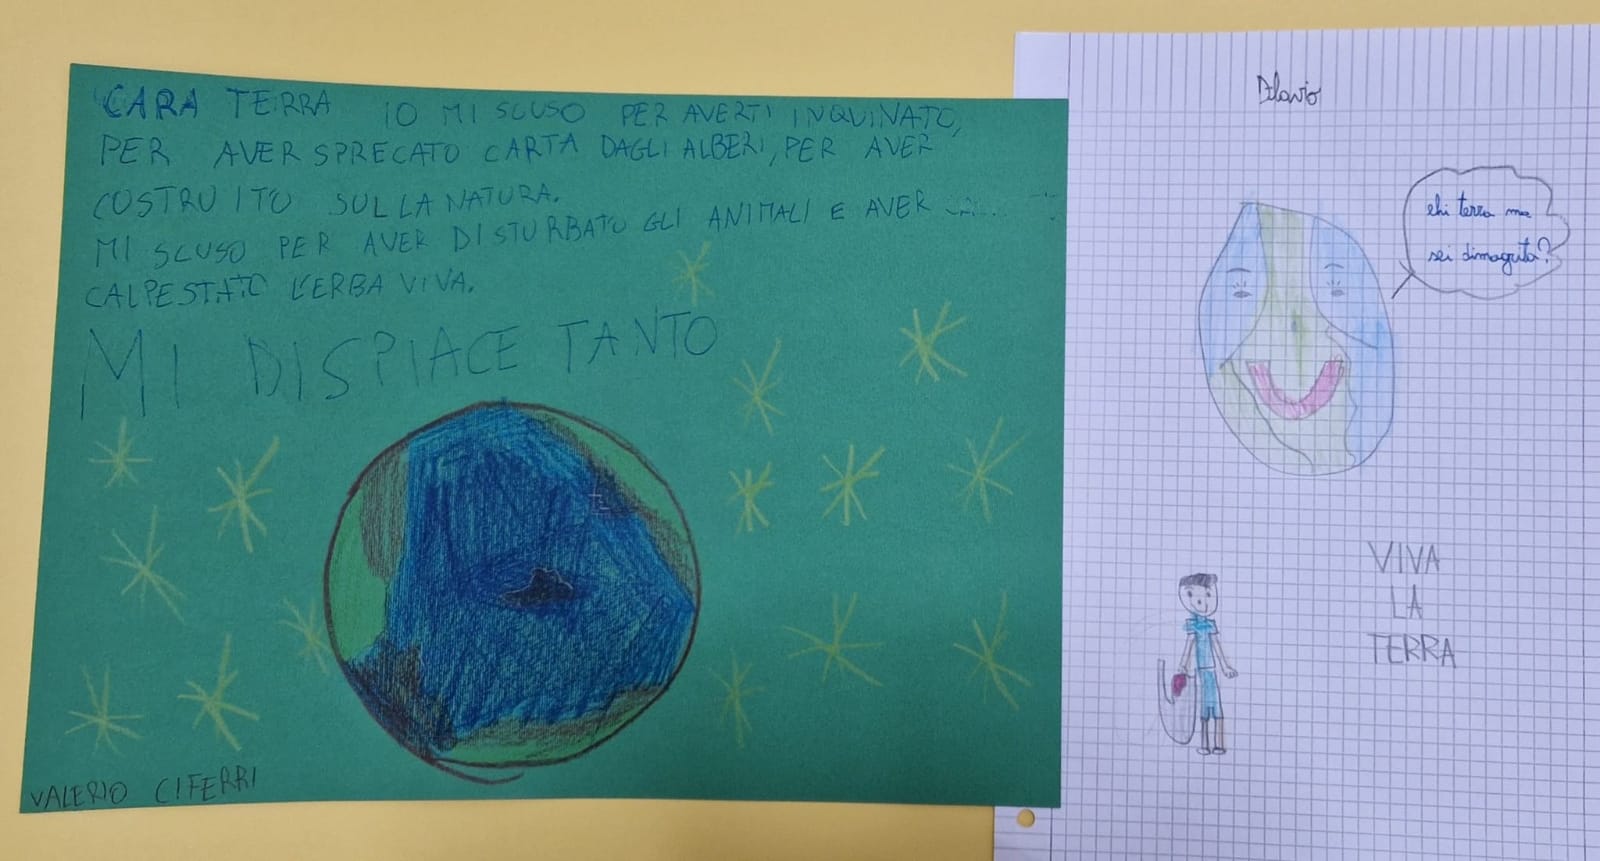 CARA TERRA IO MI SCUSO PER AVERTI INQUINATO,
PER AVER SPRECATO CARTA DAGLI ALBERI, PER AVER
COSTRUITO SULLA NATURA.
MI SCUSO PER AVER DISTURBATO GLI ANIMALI E AVER
CALPESTATO L'ERBA VIVA.
MI DISPIACE TANTO
VALERIO CIFERRI
ehi terra ma
sei dimagrita?
VIVA
LA
TERRA